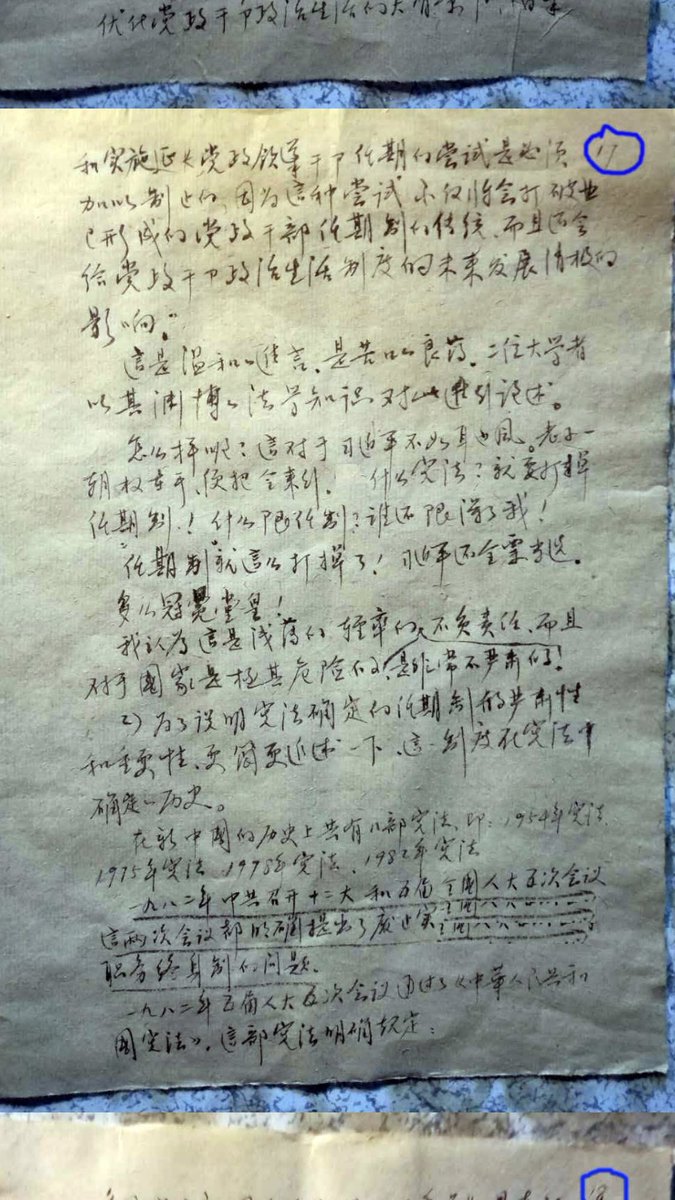 优化党政干部政治生活的
17
和实施延长党政领导干卩任期的尝试是必须
加以制止的,因为这种尝试不仅将会打破业
已形成的党政干部任期制的传统,而且还会
给党政干卩政治生活制度的未来发展消极的
影响。”
這是温和的進言,是苦口良药。二位大学者
以其渊博的法学知识对此進行论述。
怎么样呢?這对于习近平不如耳边风。老子一
朝权在手,便把令来行! 什么宪法?就要打掉
任期制!什么限任制?谁还限得了我!
任期制就這么打掉了!习近平还全票当选。
多么冠冕堂皇!
我认为這是浅薄的 轻率的、不负责任、而且
对于國家是極其危险的、是非常不严肃的!
2)为了说明宪法确定的任期制的严肃性
和重要性,更简要追述一下、這一制度在宪法中
确定的历史。
在新中國的历史上共有八部宪法,即:1954年宪法、
1975年宪法、1978年宪法、1982年宪法
一九八二年中共召开十二大和五届全國人大五次会议
這兩次会议都明确提出了废止实
职务终身制的问题。
一九八二年五届人大五次会议通过了《中華人民共和
國宪法》,這部宪法明确规定:
18